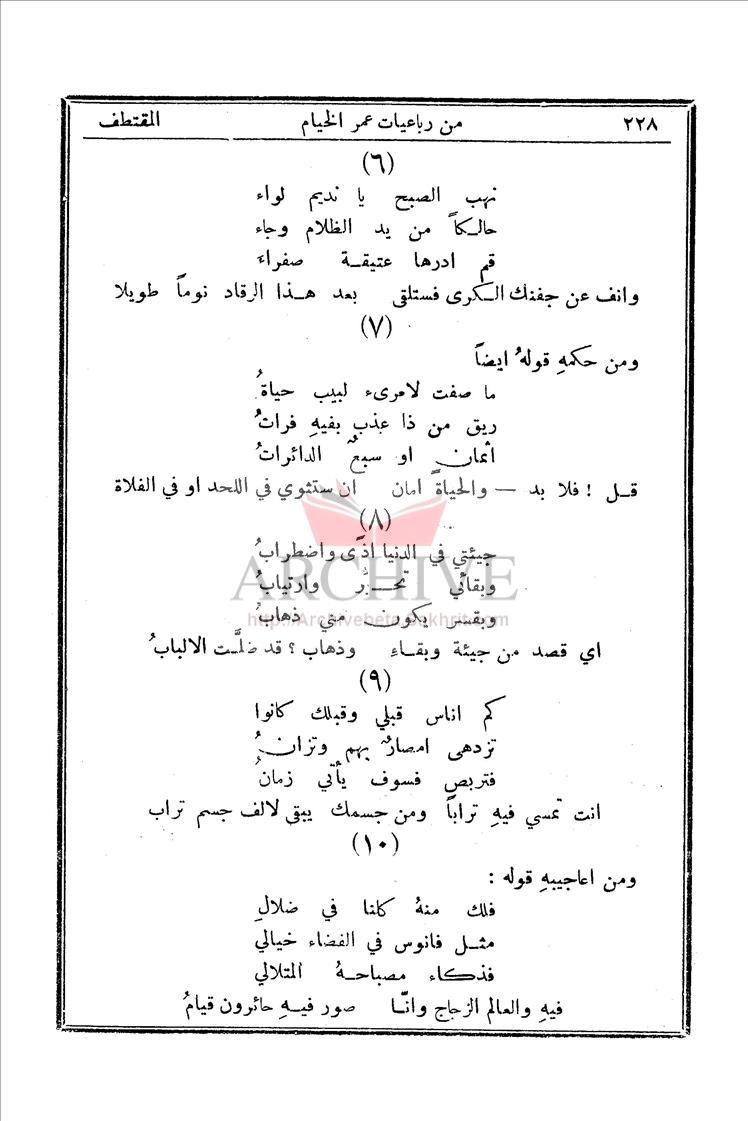 ٢٢٨ من رباعيات عمر الخيام المقتطف
(٦)
نهب الصبح يا نديم لواء
حالـكاً من يد الظلام وجاء
قم ادرها عتيقـة صفراء
وانف عن جفنك الـكرى فستلقى بعد هـذا الرقاد نوماً طويلا
(٧)
ومن حكمهِ قولهُ ايضاً
ما صفت لامرىء لبيب حياةُ
ريق من ذا عذب بفيهِ فراتُ
أثمان او سبعٌ الدائراتُ
قـل ! فلا بد — والحياةَ امان ان ستثوي في اللحد او في الفلاة
(٨)
جيئتي في الدنيا اذًى واضطرابُ
وبقائي تحـيّر وارتيابُ
وبقسر يكون مني ذهابُ
اي قصد من جيئة وبقـاءِ وذهاب ؟ قد ضلَّت الالبابُ
ARCHIVE
http://Archivebeta.Sakhrit.com
(٩)
كم اناس قبلي وقبلك كانوا
تزدهى امصارٌ بهم وتزانُ
فتربص فسوف يأتي زمانُ
انت تمسي فيهِ تراباً ومن جسمك يبقى لالف جسم تراب
(١٠)
ومن اعاجيبهِ قوله :
فلك منهُ كلنا في ضلالِ
مثـل فانوس في الفضاء خيالي
فذكاء مصباحـهُ المتلالي
فيهِ والعالم الزجاج وانّـا صور فيـهِ حائرون قيامُ